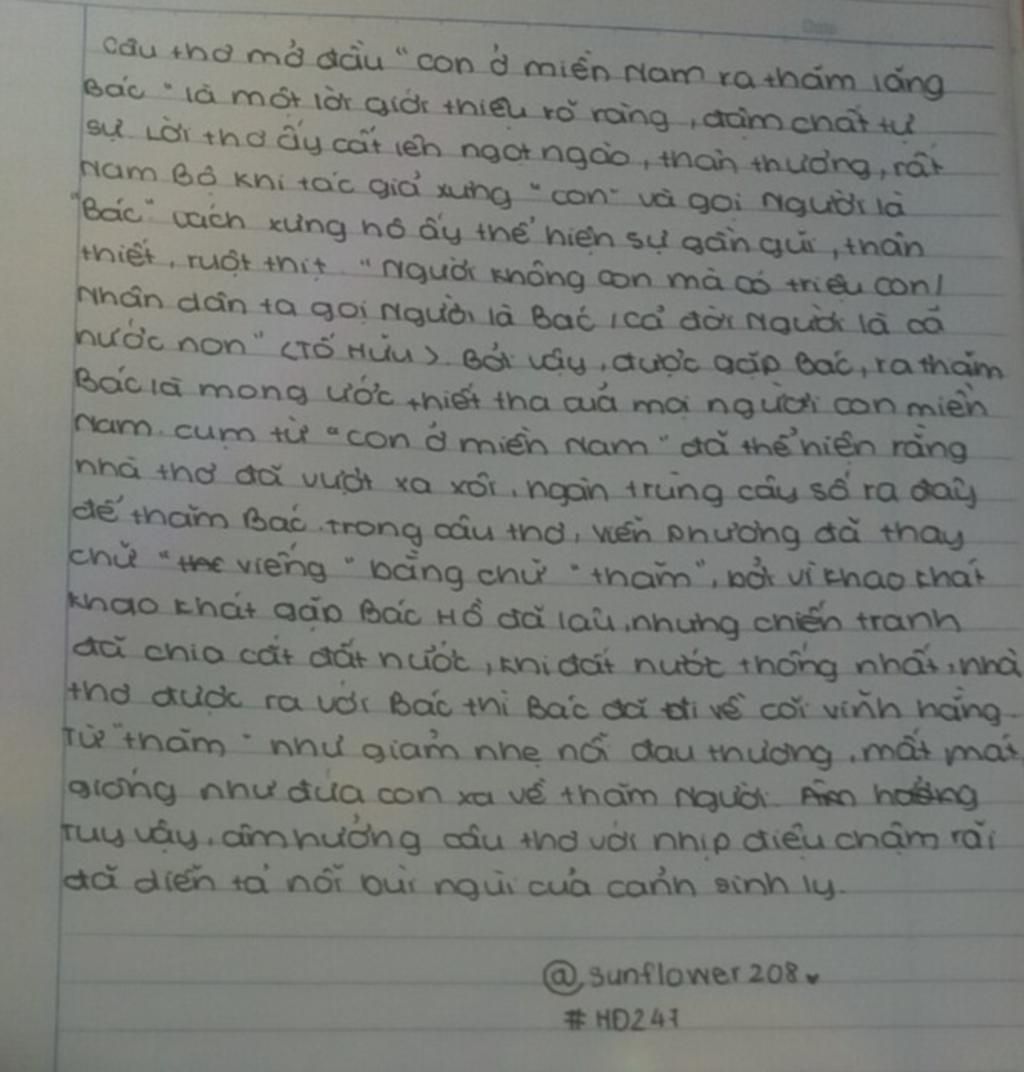 câu thơ mở đầu "con ở miền Nam ra thăm lăng
Bác" là một lời giới thiệu rõ ràng, đậm chất tự
sự. Lời thơ ấy cất lên ngọt ngào, thân thương, rất
Nam Bộ khi tác giả xưng "con" và gọi Người là
"Bác" cách xưng hô ấy thể hiện sự gần gũi, thân
thiết, ruột thịt. "Người không con mà có triệu con/
Nhân dân ta gọi Người là Bác / Cả đời Người là của
nước non" (Tố Hữu). Bởi vậy, được gặp Bác, ra thăm
Bác là mong ước thiết tha của mọi người con miền
Nam. cụm từ "con ở miền Nam" đã thể hiện rằng
nhà thơ đã vượt xa xôi, ngàn trùng cây số ra đây
để thăm Bác. trong câu thơ, Viễn Phương đã thay
chữ "viếng" bằng chữ "thăm", bởi vì khao khát
khao khát gặp Bác Hồ đã lâu, nhưng chiến tranh
đã chia cắt đất nước, khi đất nước thống nhất, nhà
thơ được ra với Bác thì Bác đã đi về cõi vĩnh hằng.
Từ "thăm" như giảm nhẹ nỗi đau thương, mất mát
giống như đứa con xa về thăm Người.
Tuy vậy, âm hưởng câu thơ với nhịp điệu chậm rãi
đã diễn tả nỗi bùi ngùi của cảnh sinh ly.
@sunflower208♥
#HD247